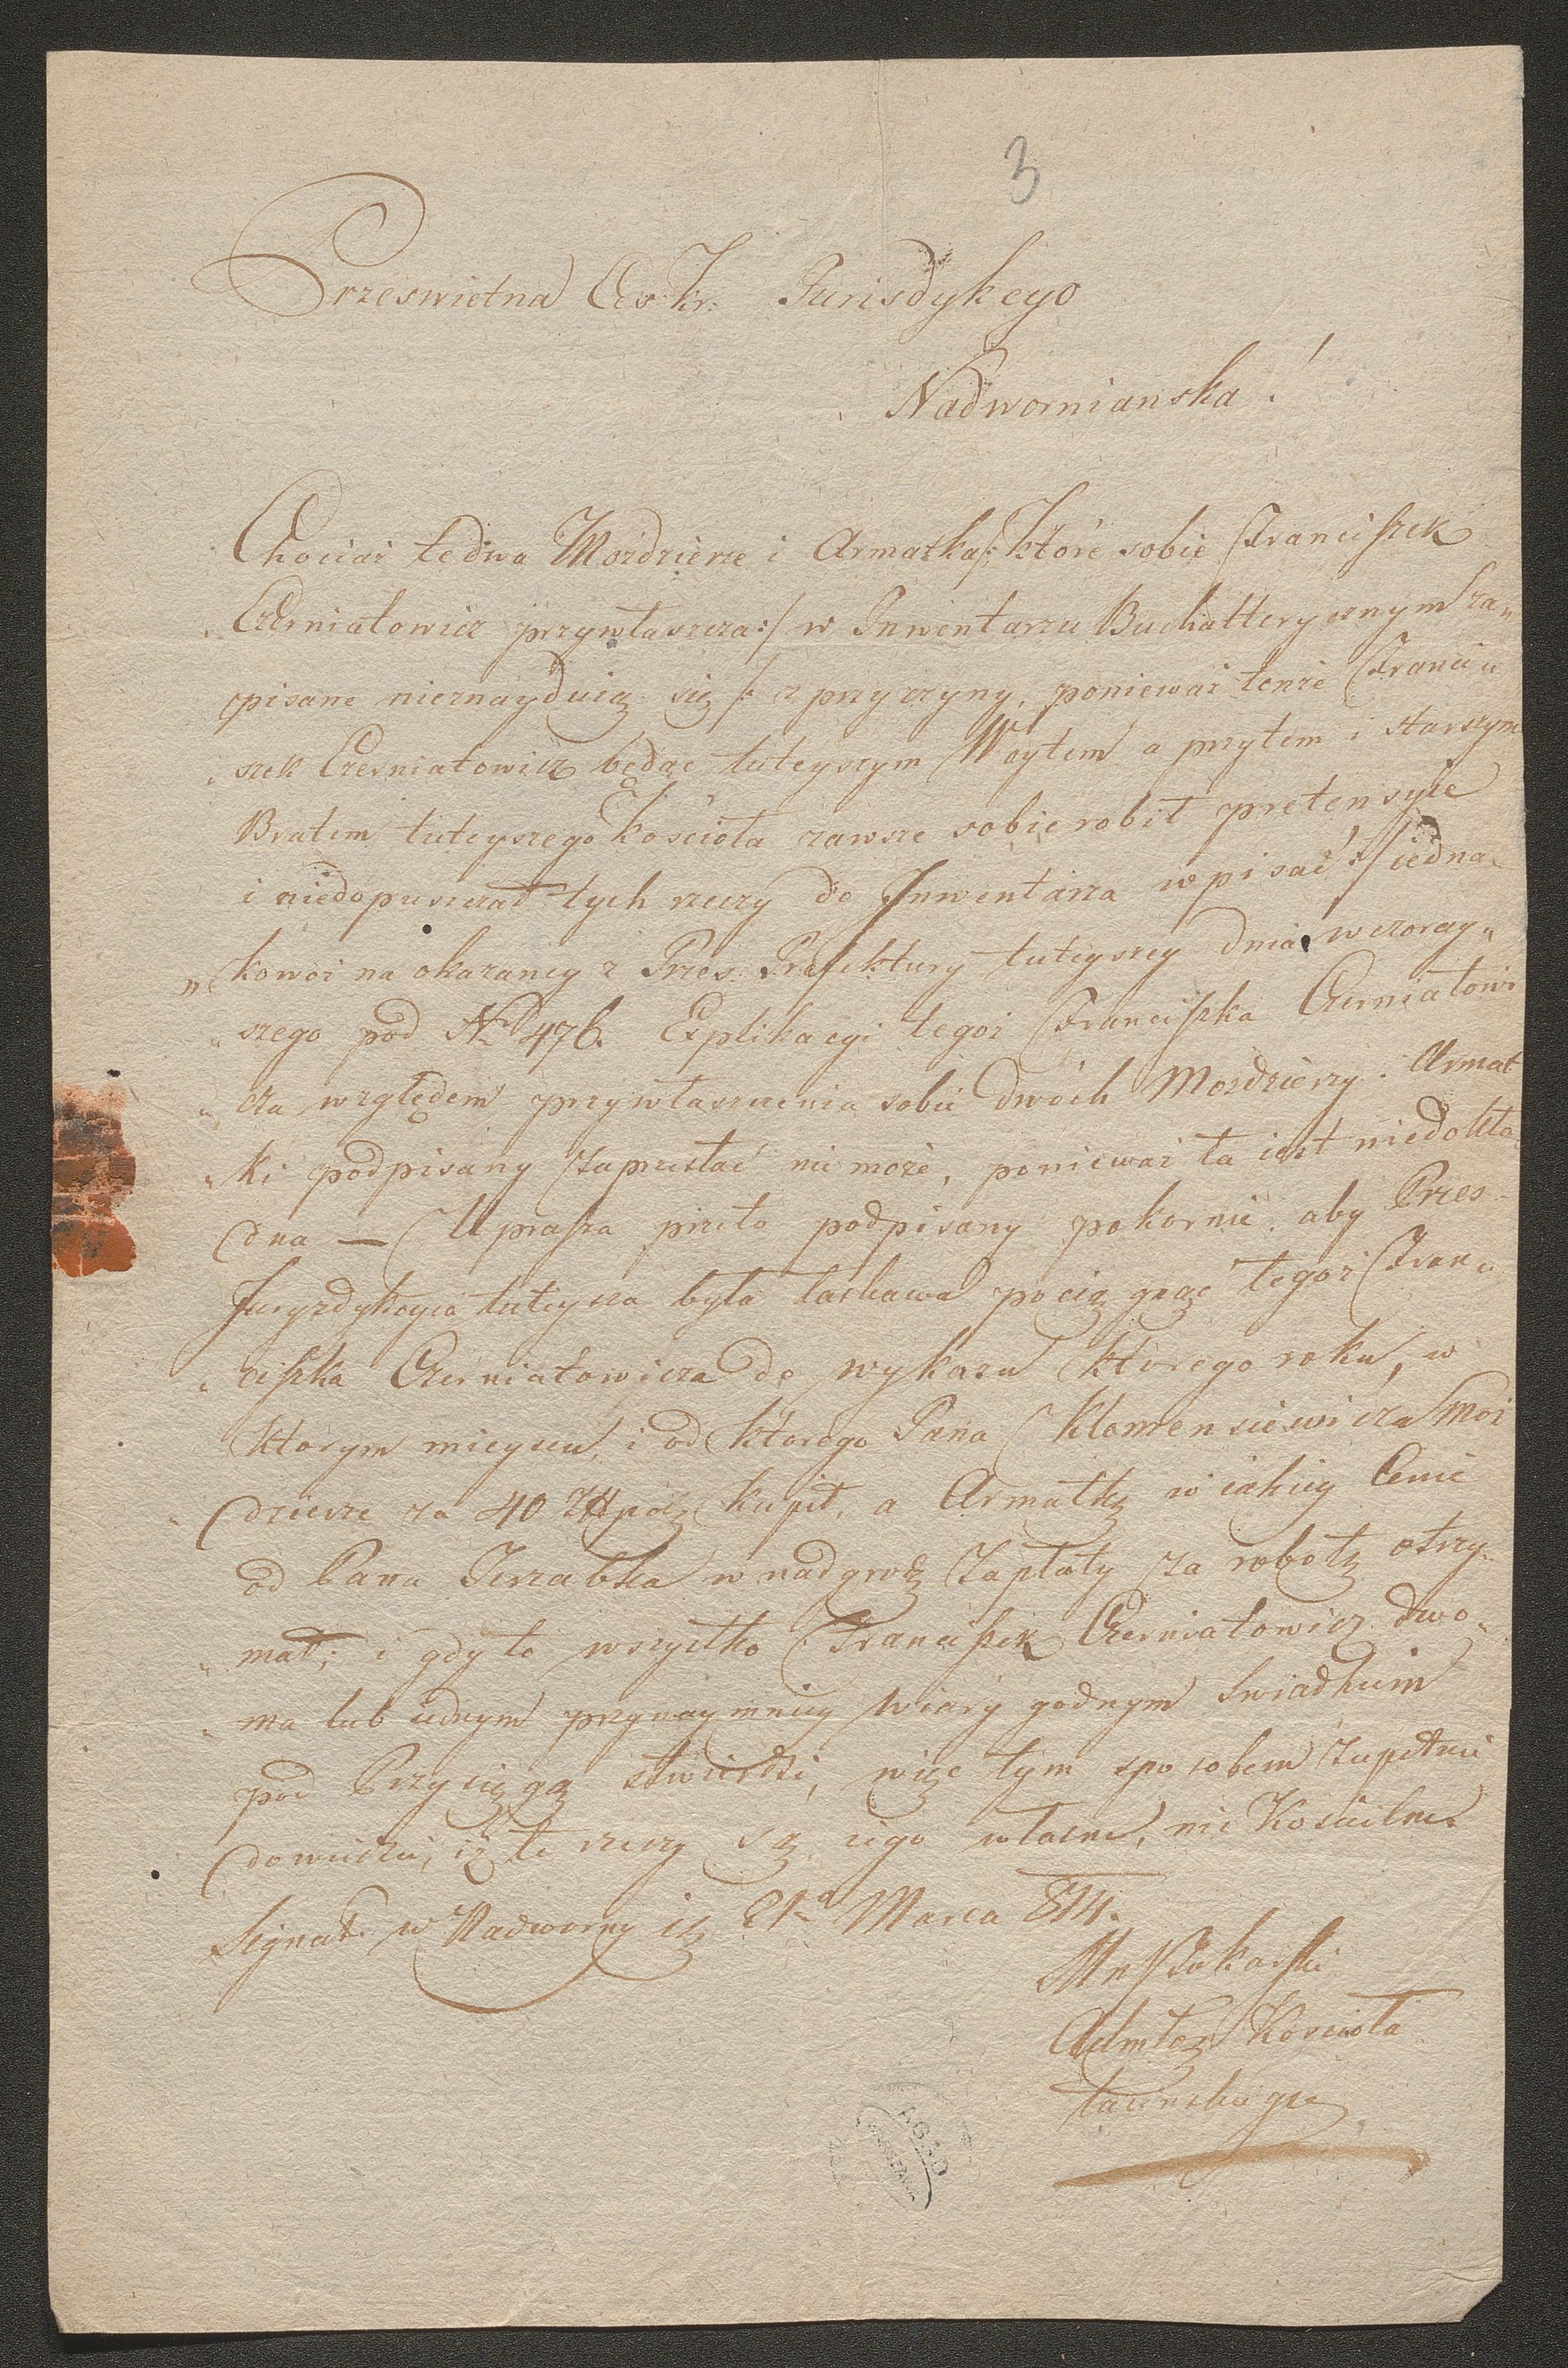 3
Przeswietna Ces. Kr. Jurisdykcyo
Nadwornianska!
Chociaż te dwa Możdzierze i Armatka /: które sobie Franciszek
Czerniatowicz przywłaszcza :/ w Inwentarzu Buchatterycznym za„
pisane nieznayduią się /: z przyczyny, ponieważ tenże Franci„
„szek Czerniatowicz będąc tuteyszym Woytem a przytem i starszym
Bratem tuteyszego Kościoła zawsze sobie robił pretensyie
i niedopuszczał tych rzeczy do Inwentarza wpisać :/ iedna„
„kowoż na okazaney z Przes. Prefektury tuteyszey dnia wczoray„
„szego pod Nro 476. Explikacyi tegoż Franciszka Czerniatowi
„cza względem przywłaszczenia sobie dwóch Mozdzierzy i Armat
„ki podpisany zaprzestać nie może, ponieważ ta iest niedokła„
dna — Uprasza przeto podpisany pokornie, aby Przes.
Juryzdykcyia tuteysza była łaskawa pociągnąć tegoż Fran„
„ciszka Czerniatowicza do wykazu którego roku, w
którym mieyscu, i od którego Pana Klemensiewicza Moż
„dzierze za 40 Złpol kupił, a Armatkę w iakiey Cenie
od Pana Jerzabka w nadgrodę Zapłaty za robotę otrzy„
„mał; i gdy to wszystko Franciszek Czerniatowicz dwo„
„ma lub iednym przynaymniey wiary godnym Swiadkiem
pod Przysięgą stwierdzi, więc tym sposobem zupełnie
dowiedzie, iż te rzeczy są iego własne, nie Kościelne.
Signat. w Nadworny ią 21a Marca 814.
Admtor Kościoła
łacinskiego
AGAD